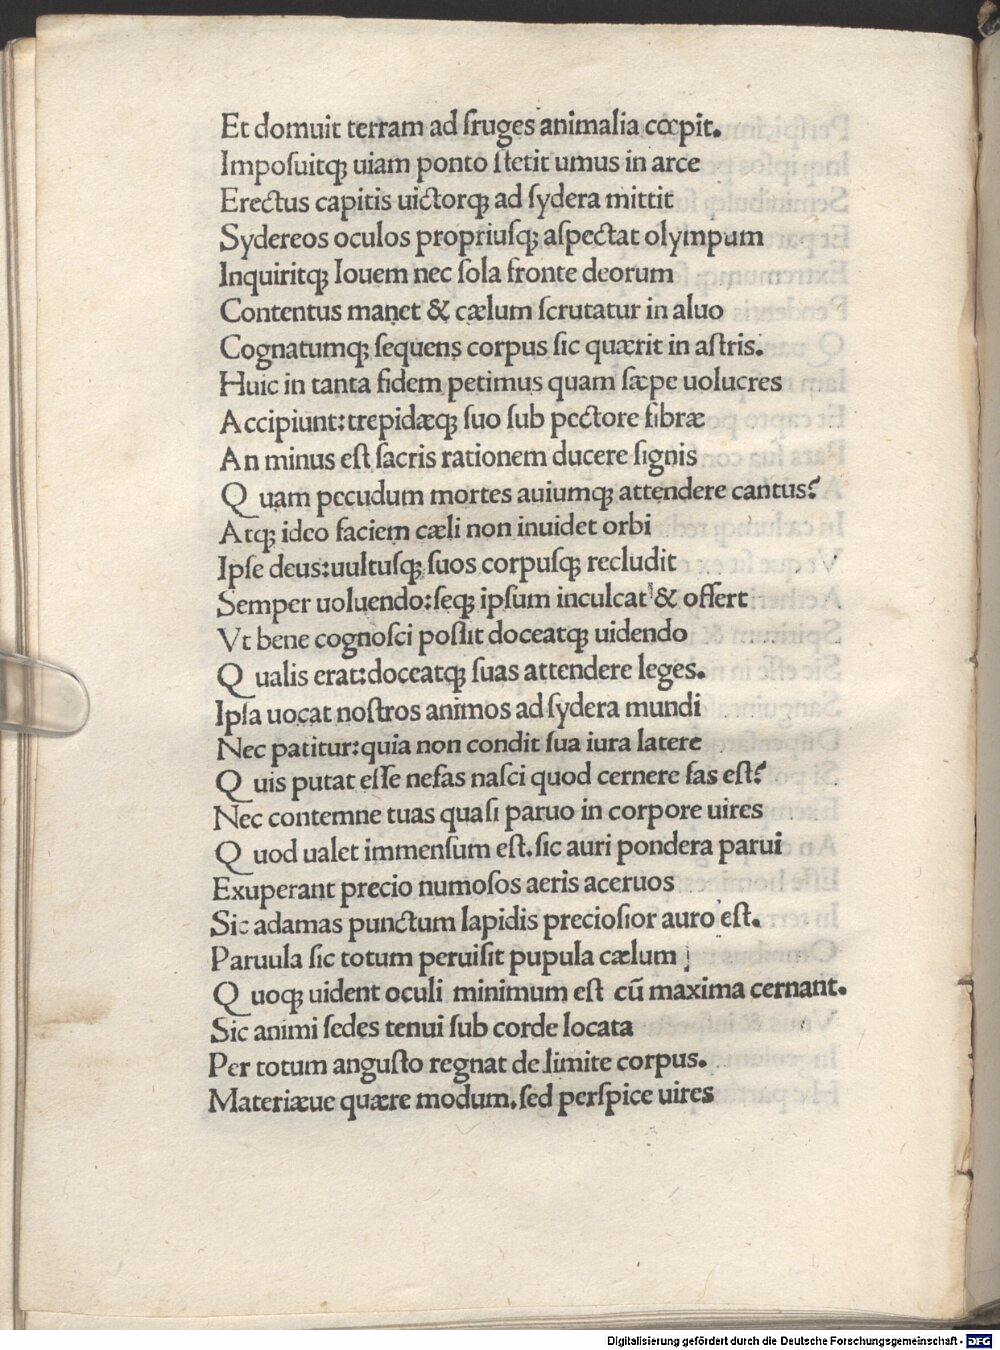 Et domuit terram ad fruges animalia cœpit.
Impoſuitqꝫ uiam ponto ſtetit umus in arce
Erectus capitis uictorqꝫ ad ſydera mittit
Sydereos oculos propriuſqꝫ aſpectat olympum
Inquiritqꝫ Iouem nec ſola fronte deorum
Contentus manet & cælum ſcrutatur in aluo
Cognatumqꝫ ſequens corpus ſic quærit in aſtris.
Huic in tanta fidem petimus quam ſæpe uolucres
Accipiunt:trepidæqꝫ ſuo ſub pectore fibræ
An minus eſt ſacris rationem ducere ſignis
Q uam pecudum mortes auiumqꝫ attendere cantus?
Atqꝫ ideo faciem cæli non inuidet orbi
Ipſe deus:uultuſqꝫ ſuos corpuſqꝫ recludit
Semper uoluendo:ſeqꝫ ipſum inculcat & offert
Vt bene cognoſci poſſit doceatqꝫ uidendo
Q ualis erat:doceatqꝫ ſuas attendere leges.
Ipſa uocat noſtros animos ad ſydera mundi
Nec patitur:quia non condit ſua iura latere
Q uis putat eſſe nefas naſci quod cernere fas eſt?
Nec contemne tuas quaſi paruo in corpore uires
Q uod ualet immenſum eſt.ſic auri pondera parui
Exuperant precio numoſos aeris aceruos
Sic adamas punctum lapidis precioſior auro eſt.
Paruula ſic totum peruiſit pupula cælum
Q uoqꝫ uident oculi minimum eſt cū maxima cernant.
Sic animi ſedes tenui ſub corde locata
Per totum anguſto regnat de limite corpus.
Materiæue quære modum.ſed perſpice uires
Digitalisierung gefördert durch die Deutsche Forschungsgemeinschaft - DFG